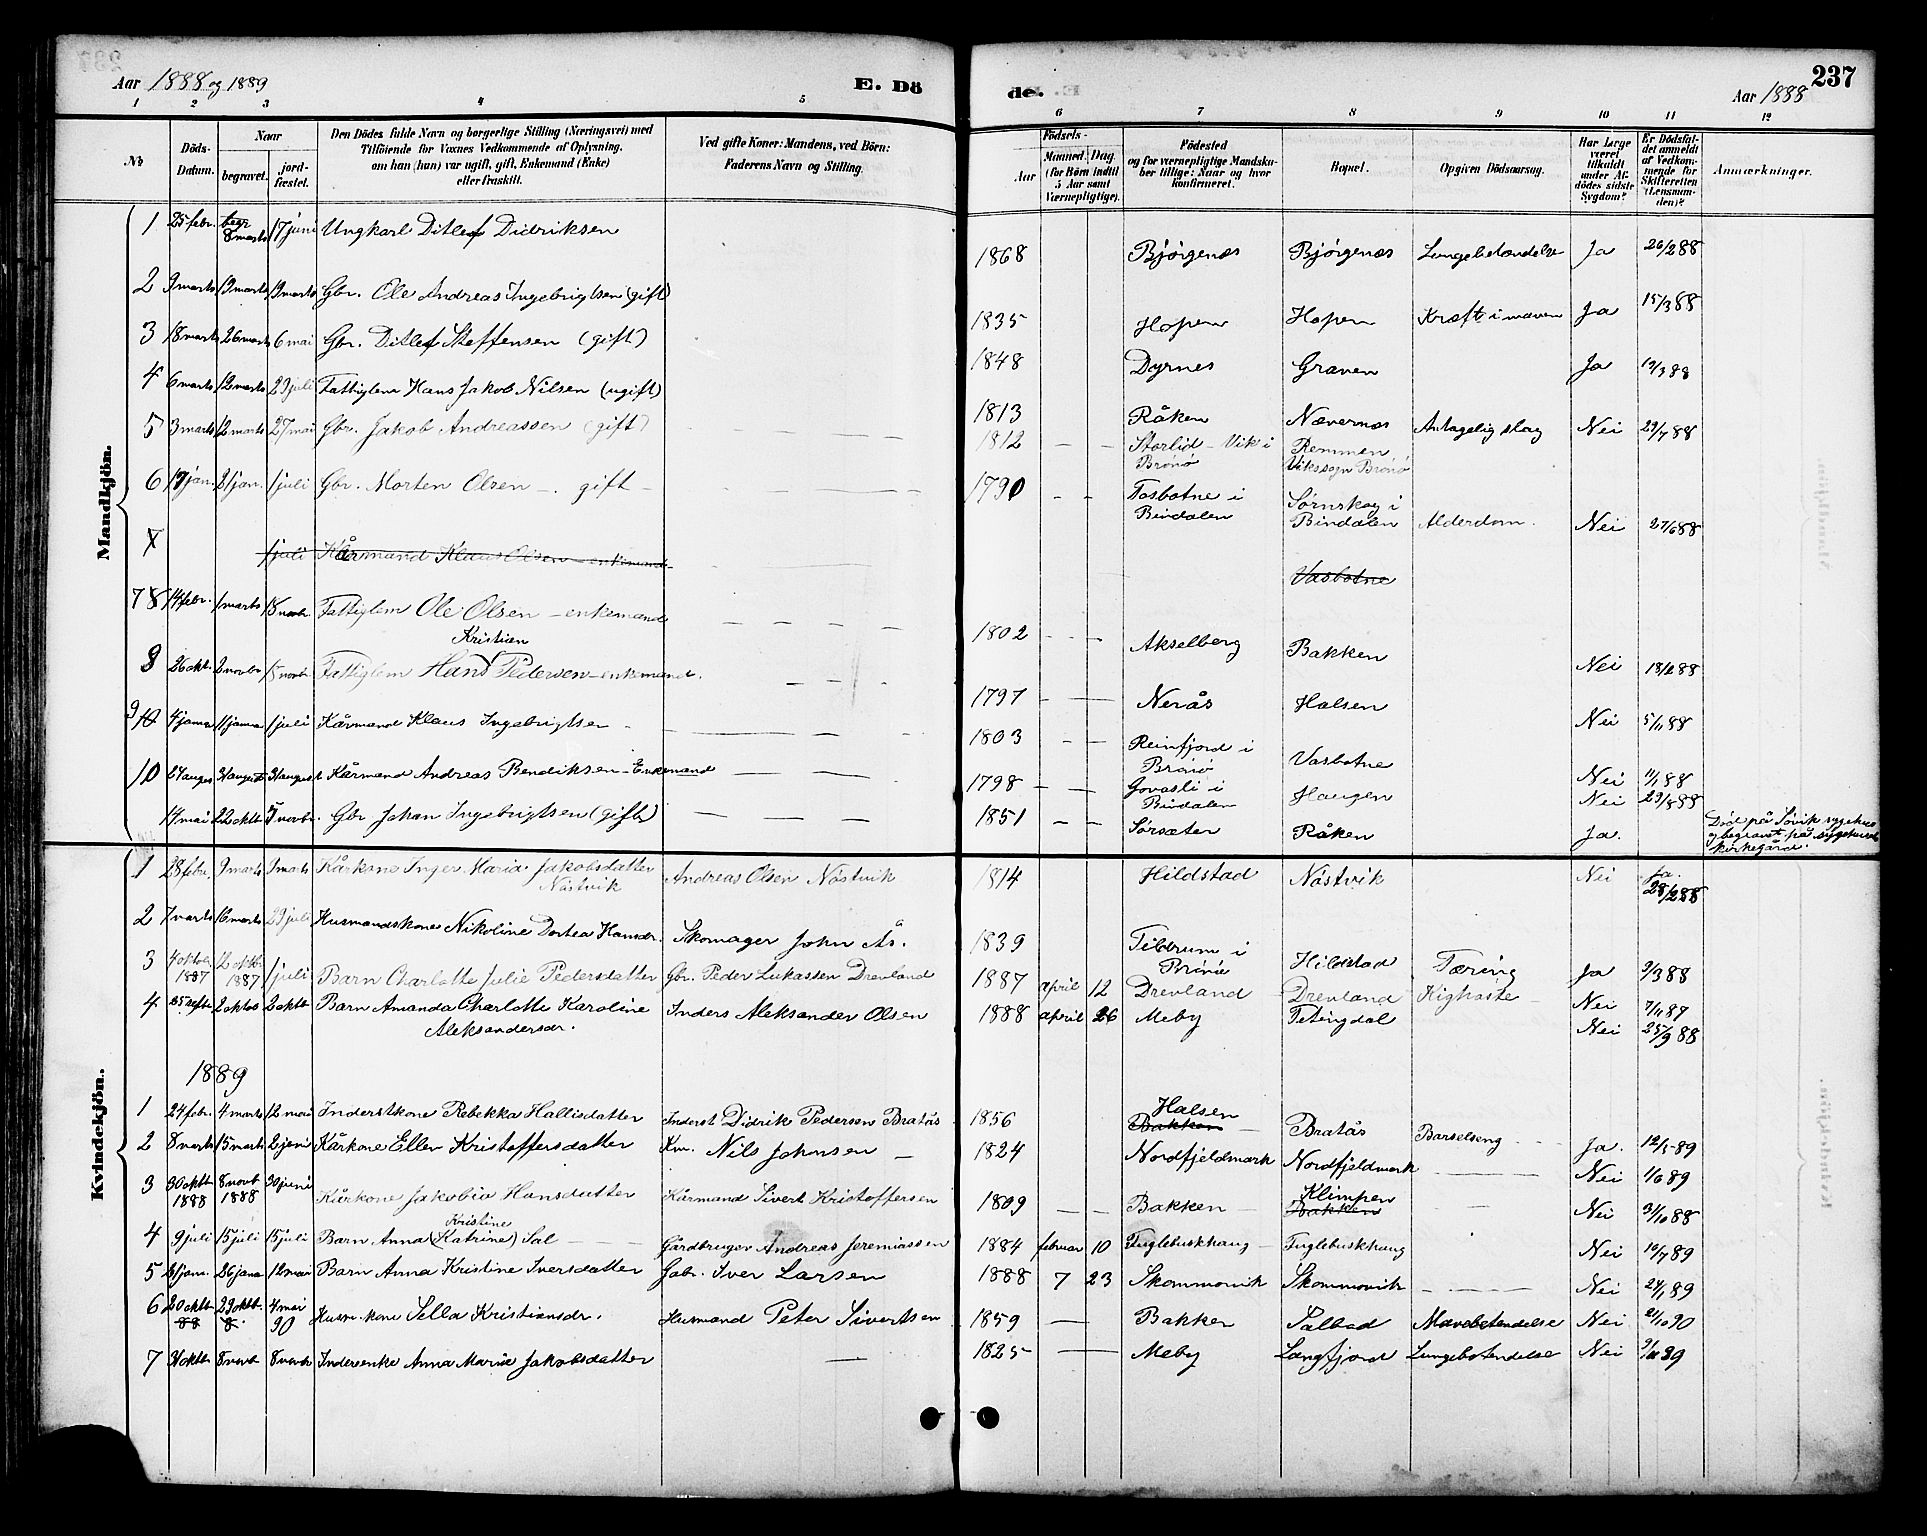 Aar 1888 og 1889
E. Dö
de.
237
Aar 1888
1 2 3 4 5 6 7 8 9 10 11 12
No
Döds-Datum.
Naar
begravet.
jordfæstet.
Den Dödes fulde Navn og borgerlige Stilling (Næringsvei) med
Tilföiende for Voxnes Vedkommende af Oplysning.
om han (hun) var ugift, gift, Enkemand (Enke)
eller fraskilt.
Ved gifte Koner: Mandens, ved Börn:
Faderens Navn og Stilling.
Födsels-
Aar
Maaned. Dag.
(for Börn indtil
5 Aar samt
Værnepligtige).
Födested
og for værnepligtige Mandska-
ber tillige: Naar og hvor
konfirmeret.
Bopæl.
Opgiven Dödsaarsag.
Har Læge
været
tilkaldt
under Af-
dödes sidste
Sygdom?
Er Dödsfal-
det anmeldt
af Vedkom-
mende for
Skifteretten
(Lensman-
den)?
Anmærkninger.
Mandkjön.
1 25 febr. begr 8 marts 17 juni Ungkarl Ditlef Didriksen 1868 Bjørgenæs Bjørgenæs Lungebetændelse Ja 26/2 88
2 9 marts 19 marts 19 marts Gbr. Ole Andreas Ingebrigtsen (gift) 1835 Hopen Hopen Kræft i maven Ja 15/3 88
3 18 marts 26 marts 6 mai Gbr. Ditlef Steffensen (gift) 1848 Dyrnes Graven Ja 19/3 88
4 6 marts 12 marts 29 juli Fattiglem Hans Jakob Nilsen (ugift) 1813 Råken Nævernæs Antagelig slag Nei 29/7 88
5 3 marts 12 marts 27 mai Gbr. Jakob Andreassen (gift) 1812 Storlid - Vik i Brønø Remmen Vikssogn Brønø
6 19 jan. 21 jan. 1 juli Gbr. Morten Olsen - gift - 1790 Tosbotne i Bindalen Sørnskog i Bindalen Alderdom. Nei 27/6 88
7 1 juli Kårmand Klaus Olsen - enkemand Vasbotne
7 8 14 febr. 1 marts 18 novbr Fattiglem Ole Olsen - enkemand 1802 Akselberg Bakken Nei
8 26 okt. 2 novbr 15 novbr Fattiglem Hans Kristian Pedersen - enkemand. 1797 Nerås Halsen Nei 5/11 88
9 10 4 janua 11 janua 1 juli Kårmand Klaus Ingebrigtsen - 1803 Reinfjord i Brønø Vasbotne Nei 11/1 88
10 27 augus 31 august 31 august Kårmand Andreas Bendiksen - Enkemand 1798 Govasli i Bindalen Haugen Nei 29/8 88
14 mai 22 oktb 5 novbr. Gbr Johan Ingebrigtsen (gift) 1851 Sørsæter Råken Ja. Død på Søvik sygehus og begravet på sygehusets kirkegård.
Kvindekjön.
1 28 febr. 9 marts 9 marts Kårkone Inger Maria Jakobsdatter Nöstvik Andreas Olsen Nöstvik 1814 Hildstad Nöstvik Nei Ja. 28/2 88
2 7 marts 16 marts 29 juli Husmandskone Nikoline Dortea Hansdr. Skomager John Ås. 1839 Tildrum i Brønø Hildstad Tæring Ja 9/3 88
3 4 oktbr. 1887 12 oktb. 1887 1 juli Barn Charlotte Julie Pedersdatter Gbr. Peder Lukassen Drevland 1887 april 12 Drevland Drevland Kighoste Nei 7/11 87
4 25 septb 2 oktob 2 oktb Barn Amanda Charlotte Karoline Aleksandersdr. Inders Aleksander Olsen 1888 april 26 Meby Tetingdal Nei 25/9 88
1889
1 24 febr. 4 marts 12 mai Inderstkone Rebekka Hallisdatter Inderst Didrik Pedersen Bratås 1856 Halsen Bakken Bratås Barselseng Ja. 12/3 89
2 8 marts 15 marts 2 juni Kårkone Ellen Kristoffersdatter Km. Nils Johnsen 1824 Nordfjeldmark Nordfjeldmark Nei 1/6 89
3 30 oktb 1888 8 novb 1888 30 juni Kårkone Jakobia Hansdatter Kårmand Sivert Kristoffersen 1809 Bakken Klimpen Bakken Nei 31/10 88
4 9 juli 15 juli 15 juli Barn Anna (Katrine) Kristine Sal Gårdbruger Andreas Jeremiassen 1884 februar 10 Fuglebuskhaug Fuglebuskhaug Nei 10/7 89
5 21 jan. 26 janu 12 mai Barn Anna Kristine Iversdatter Gabr. Iver Larsen 1888 7 23 Skommovik Skommovik Nei 24/1 89
6 20 oktb 88 29 oktb. 8. 4 mai 90 Husm. kone Sella Kristiansdr. Husmand Peter Sivertsen 1859 Bakken Salbad Mavebetendelse Nei 21/10 90
7 31 oktb 8 novb 8 novb Indersenke Anna Maria Jakobsdatter 1825 Meby Langfjord Lungebetendelse Nei 9/11 89